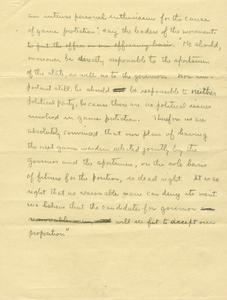 an intense personal enthusiasm for the cause
of game protection", say the leaders of the movement
to put the office on an efficiency basis. "He should,
moreover be directly responsible to the sportsmen
of the state, as well as to the governor. More im-
portant still, he should be responsible to neither
political party, because there are no political issues
involved in game protection. Therefore we are
absolutely convinced that our plan of having
the next game warden selected jointly by the
governor and the sportsmen, on the sole basis
of fitness for the position, is dead right. It is so
right that no reasonable man can deny its merit.
We believe that the candidates for governor
reasonable men, will see fit to accept our
proposition"